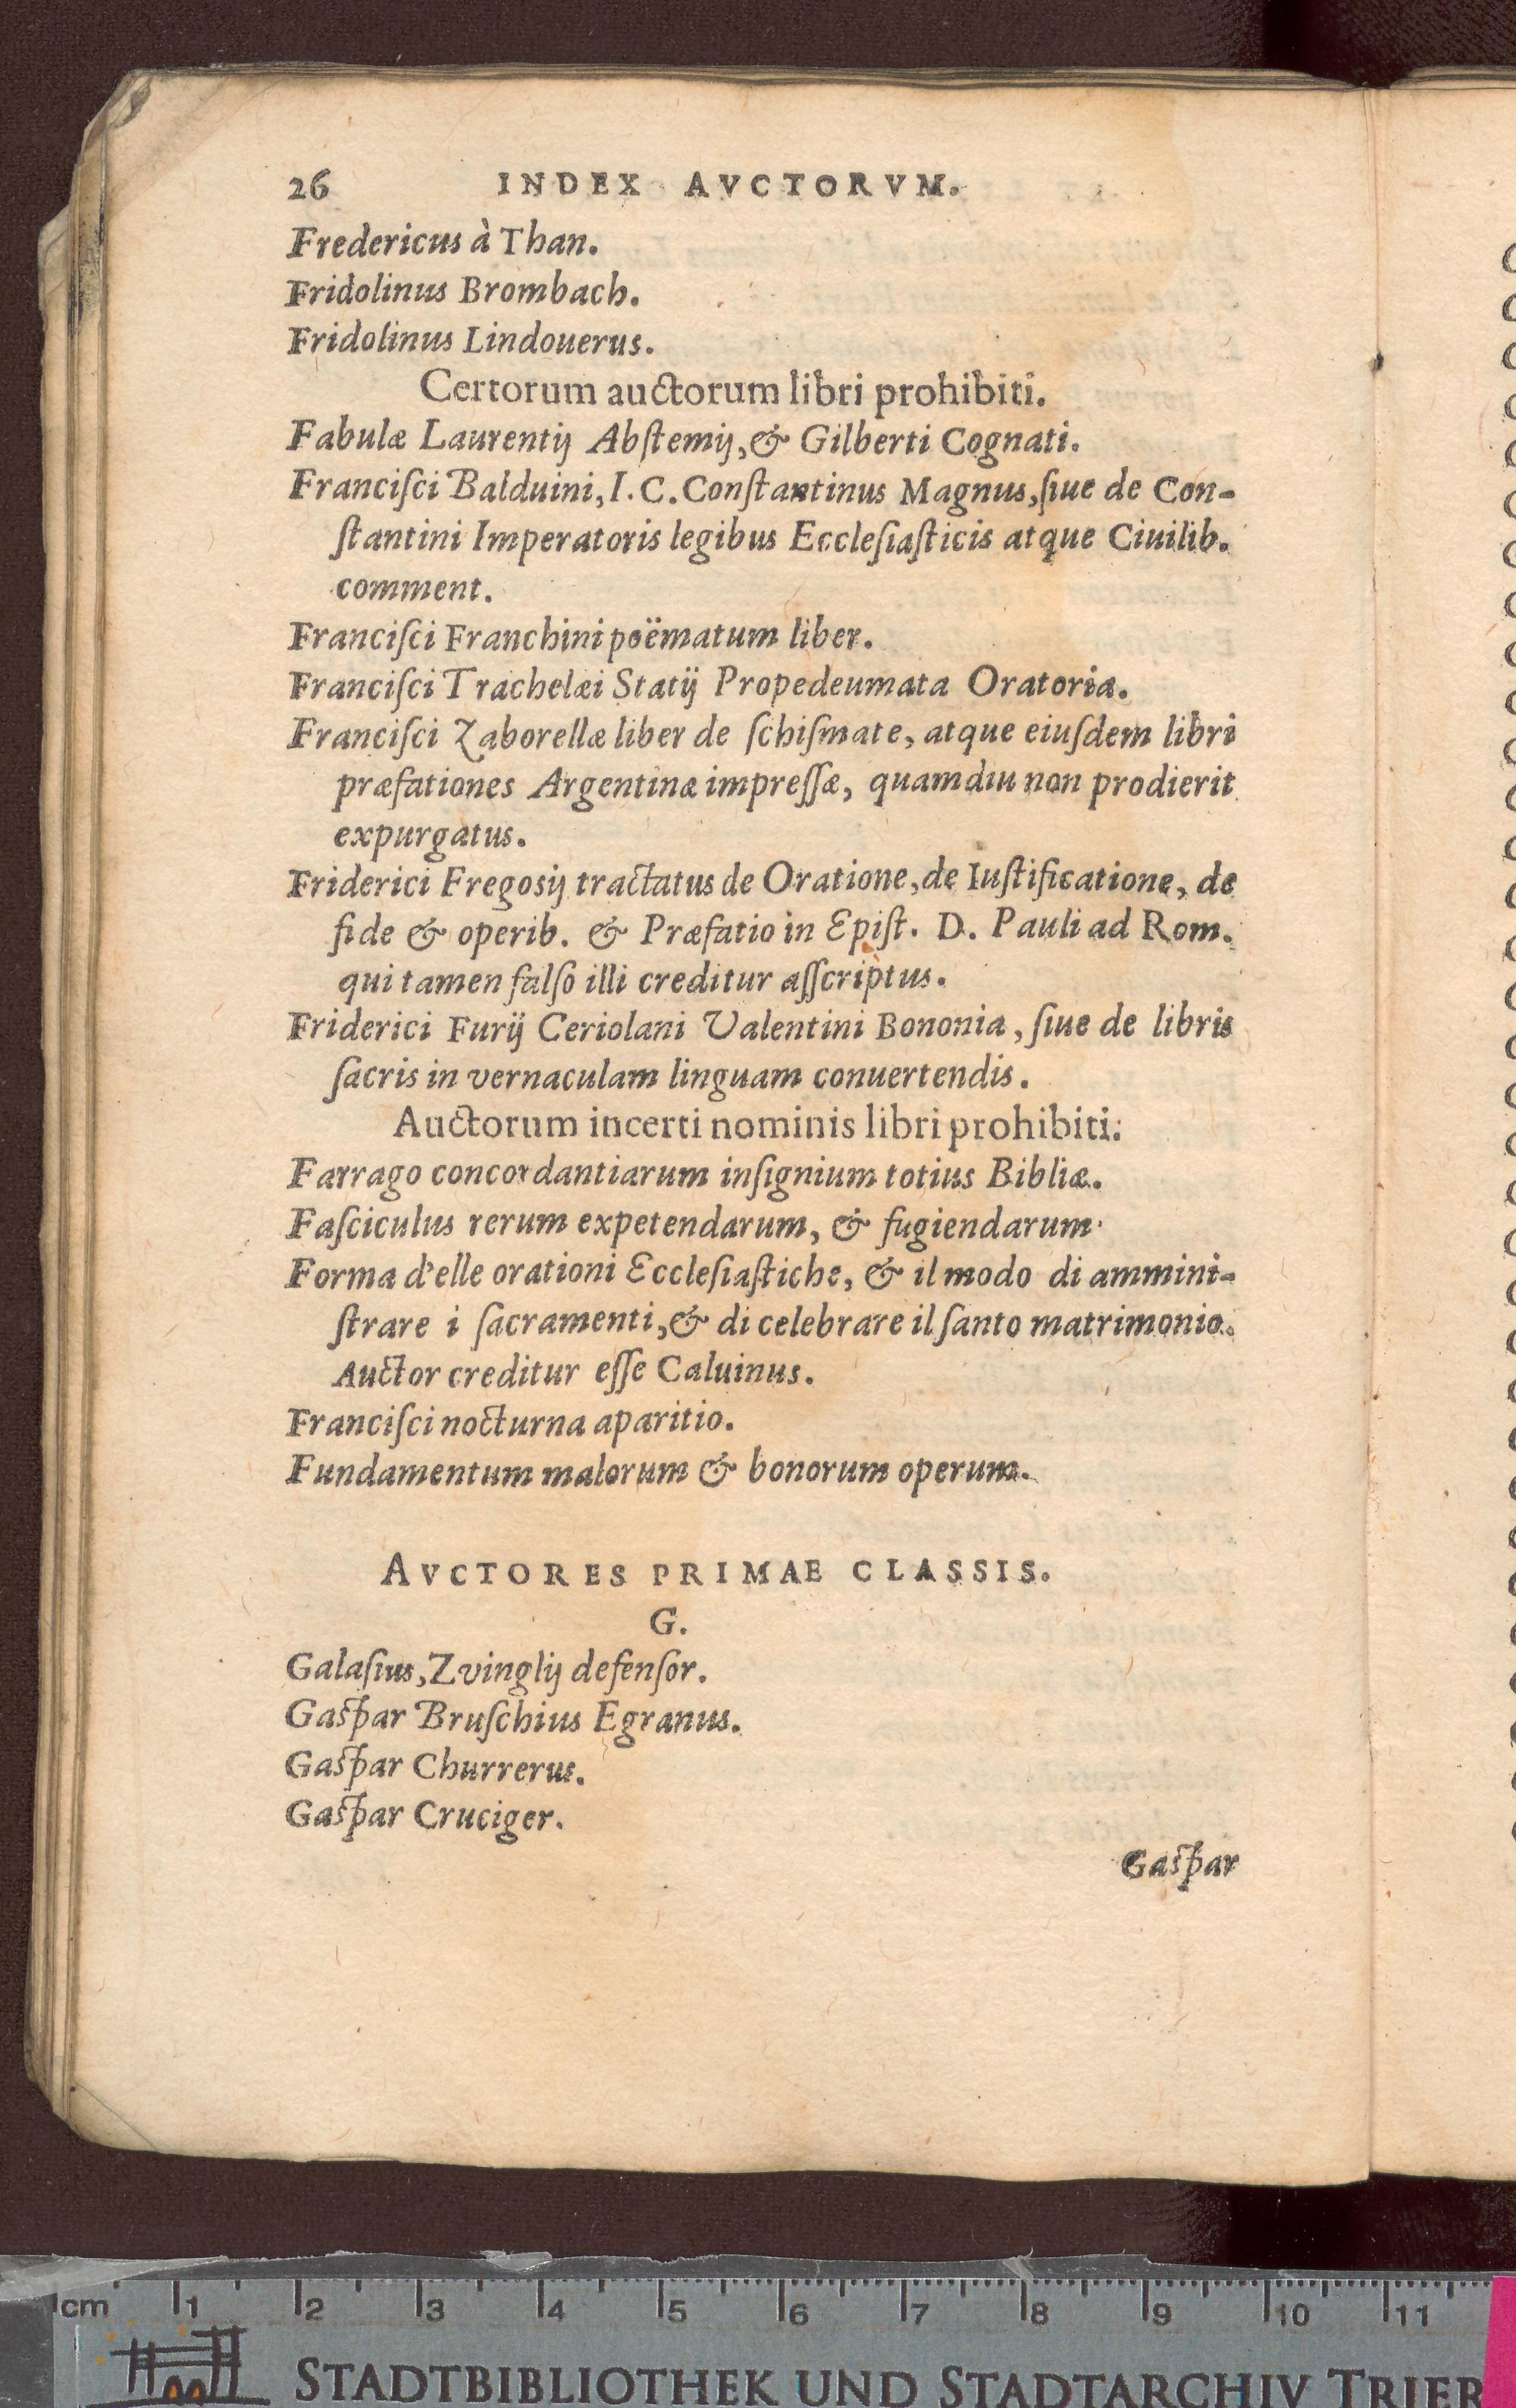 26 INDEX AVCTORVM.
Fredericus à Than.
Fridolinus Brombach.
Fridolinus Lindouerus.
Certorum auctorum libri prohibiti.
Fabulæ Laurentij Abſtemij, & Gilberti Cognati.
Franciſci Balduini, I. C. Conſtantinus Magnus, ſiue de Con-
ſtantini Imperatoris legibus Eccleſiaſticis atque Ciuilib.
comment.
Franciſci Franchini poëmatum liber.
Franciſci Trachelæi Statij Propedeumata Oratoria.
Franciſci Zaborellæ liber de ſchiſmate, atque eiuſdem libri
præfationes Argentinæ impreſſæ, quamdiu non prodierit
expurgatus.
Friderici Fregosij tractatus de Oratione, de Iuſtificatione, de
fide & operib. & Præfatio in Epiſt. D. Pauli ad Rom.
qui tamen falſo illi creditur aſſcriptus.
Friderici Furij Ceriolani Valentini Bononia, ſiue de libris
ſacris in vernaculam linguam conuertendis.
Auctorum incerti nominis libri prohibiti.
Farrago concordantiarum inſignium totius Bibliæ.
Faſciculus rerum expetendarum, & fugiendarum.
Forma d'elle orationi Eccleſiaſtiche, & il modo di ammini-
ſtrare i ſacramenti, & di celebrare il ſanto matrimonio.
Auctor creditur eſſe Caluinus.
Franciſci nocturna aparitio.
Fundamentum malorum & bonorum operum.
AVCTORES PRIMAE CLASSIS.
G.
Galaſius, Zvinglij defenſor.
Gaſpar Bruſchius Egranus.
Gaſpar Churrerus.
Gaſpar Cruciger.
Gaſpar
cm 1 2 3 4 5 6 7 8 9 10 11
STADTBIBLIOTHEK UND STADTARCHIV TRIER